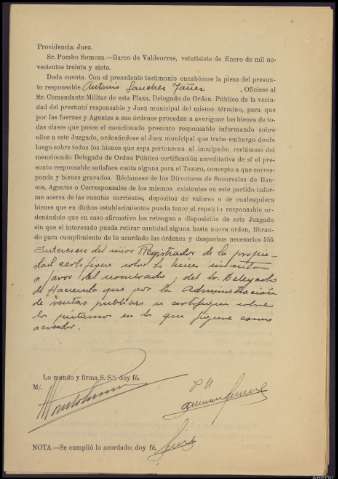 Providencia Juez
Sr. Pombo Somoza.—Barco de Valdeorras, veintisiete de Enero de mil no-
vecientos treinta y siete.
Dada cuenta. Con el precedente testimonio encabécese la pieza del presun-
to responsable Antonio Sanchez Yañez . Ofíciese al
Sr. Comandante Militar de esta Plaza, Delegado de Orden Público de la vecin-
dad del presunto responsable y Juez municipal del mismo término, para que
por las fuerzas y Agentes a sus órdenes procedan a averiguar los bienes de to-
das clases que posea el mencionado presunto responsable informando sobre
ellos a este Juzgado, ordenándose al Juez municipal que trate embargo desde
luego sobre todos los bienes que sean pertenencia al inculpado, recíbase del
mencionado Delegado de Orden Público certificación acreditativa de si el pre-
sunto responsable satisface cuota alguna para el Tesoro, concepto a que corres-
ponda y bienes gravados. Recábese de los Directores de Sucursales de Ban-
cos, Agentes o Corresponsales de los mismos existentes en este partido infor-
me acerca de las cuentas corrientes, depósitos de valores o de cualesquiera
bienes que en dichos establecimientos pueda tener el repetido responsable or-
denándole que en caso afirmativo los retengan a disposición de este Juzgado
sin que el interesado pueda retirar cantidad alguna hasta nueva orden, librán-
do para cumplimiento de lo acordado las órdenes y despachos necesarios
Interesese del señor Registrador de la propie-
dad certifique sobre los bienes inscritos
a favor del nombrado, del Sr Delegado
de Hacienda que por la Administración
de rentas publicas se certifique sobre
lo pistamo en lo que figure como
acreedor.
Lo mando y firma S. S.ª, doy fé.
M/
NOTA.—Se cumplió lo acordado; doy fé.